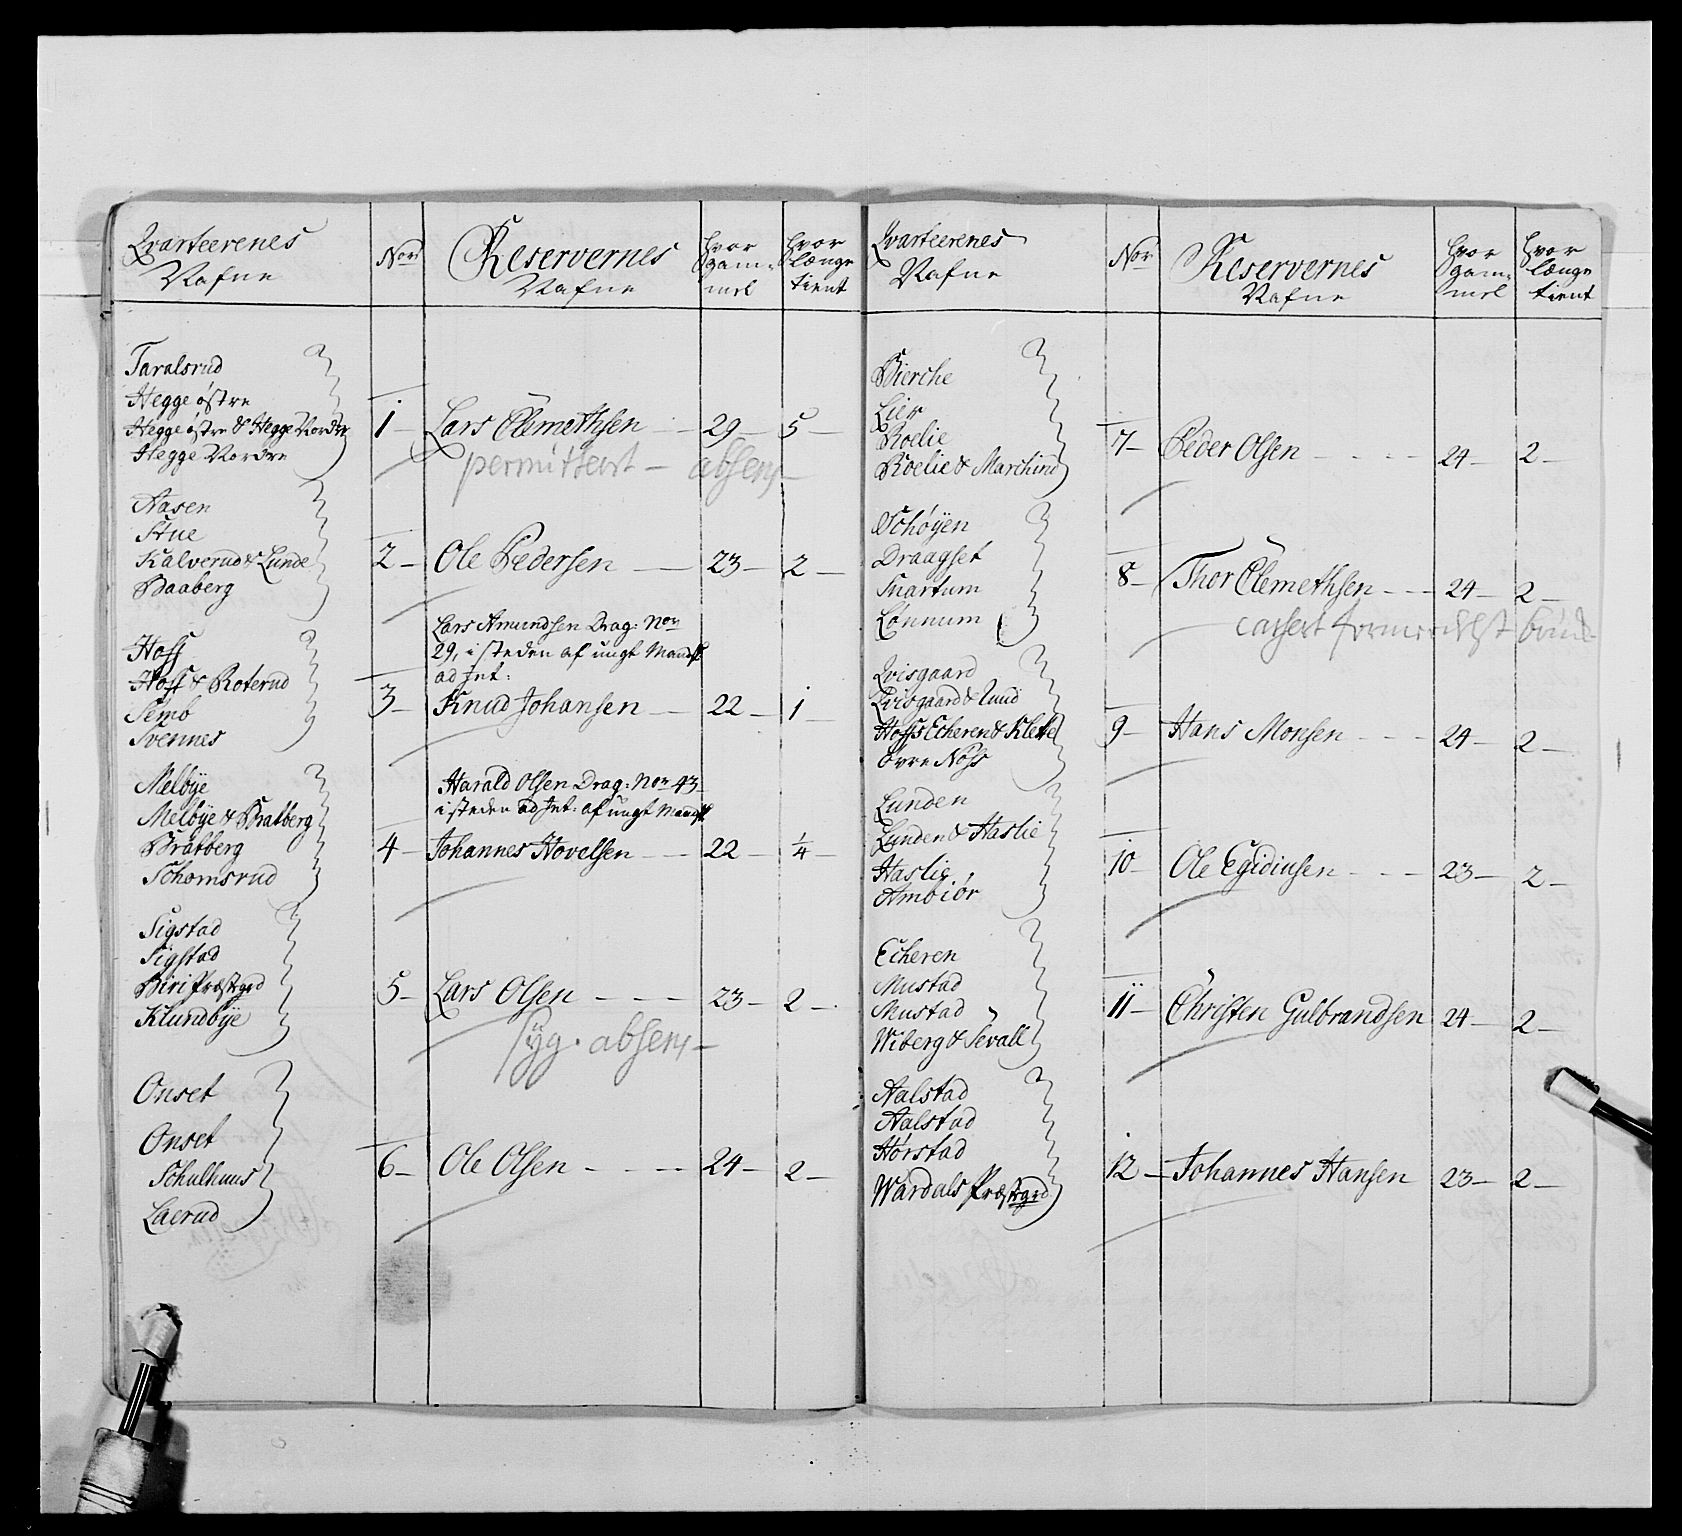 Qvarteerenes Nafne
Nor
Reservernes Nafne
hvor gam= mel
hvor længe tient
Taralsrud
Hegge østre
Hegge østre & Hegge Nordre
Hegge Nordre
1 — Lars Clemethsen — 29 — 5 —
permittert — absens —
Aasen
Stue
Kalverud & Lunde
Baaberg
2 — Ole Pedersen — 23 — 2 —
Hoff
Hoff & Roterud
Semb
Svennes
Lars Amundsen Drag: Nor
29, i steden af ungt Mandsk
ad Int:
3 — Knud Johansen — 22 — 1 —
Melbÿe
Melbÿe & Bratberg
Bratberg
Schomsrud
Harald Olsen Drag: Nor 43
i steden ad Int: af ungt Mandsk
4 — Johannes Hovelsen — 22 — 1/4 —
Sigstad
Sigstad
Biri Præstgrd
Klundbÿe
5 — Lars Olsen — 23 — 2 —
syg. absens —
Onset
Onset
Schulhuus
Laerud
6 — Ole Olsen — 24 — 2 —
Qvarteerenes Nafne
Nor
Reservernes Nafne
hvor gam= mel
hvor længe tient
Bierche
Lier
Roelie
Roelie & Marchind
7 — Peder Olsen — 24 — 2 —
Schøÿen
Draagset
Snartum
Lønnum
8 — Thor Clemethsen — 24 — 2 —
cassert
Qvisgaard
Qvisgaard & Ruud
Hoffs Echeren & Klette
øvre Noss
9 — Hans Monsen — 24 — 2 —
Lunden
Lunden & Haslie
Haslie
Ambiør
10 — Ole Egidiusen — 23 — 2 —
Echeren
Mustad
Mustad
Wiberg & Sevall
11 — Christen Gulbrandsen 24 — 2 —
Aalstad
Aalstad
Horstad
Wardals Præstgrd
12 — Johannes Hansen 23 — 2 —